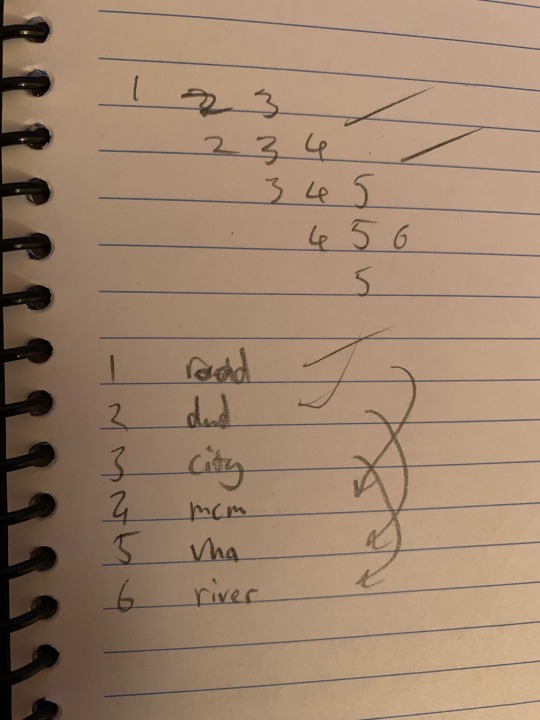 1 2 3
2 3 4
3 4 5
4 5 6
5
1 road
2 dad
3 city
4 mcm
5 vha
6 river